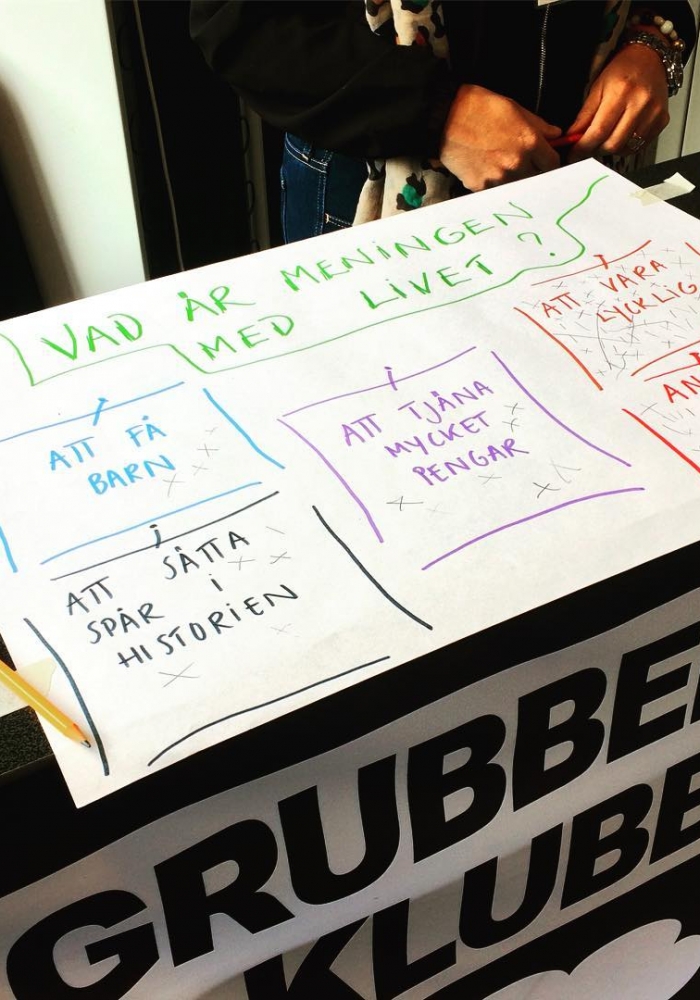 VAD ÄR MENINGEN
MED LIVET?
ATT FÅ
BARN
ATT TJÄNA
MYCKET
PENGAR
ATT VARA
LYCKLIG
AN
ATT SÄTTA
SPÅR i
HISTORIEN
GRUBBE
KLUBB